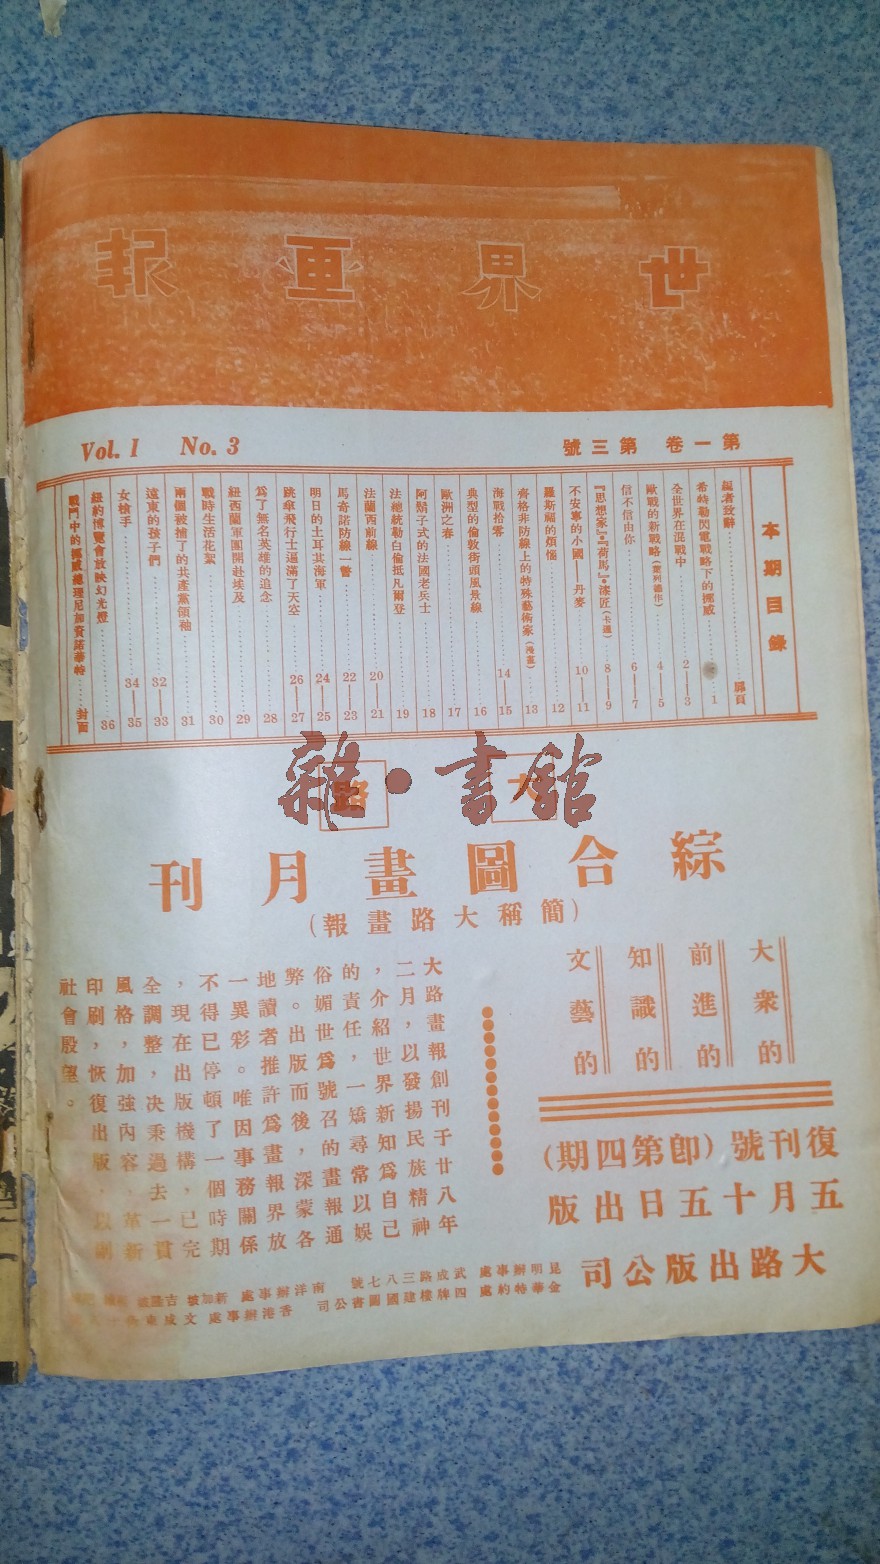 世界畫報
第一卷 第三號
Vol. 1 No. 3
本期目錄
編者致辭⋯⋯扉頁
希特勒閃電戰略下的挪威⋯⋯1
全世界在混戰中⋯⋯2—3
歐戰的新戰略⋯⋯4—5
信不信由你⋯⋯6—7
『思想家』『荷馬』・漆匠(卡通)⋯⋯8—9
不安寧的小國——丹麥⋯⋯10—11
羅斯福的煩惱⋯⋯12
齊格非防線上的特殊藝術家(漫畫)⋯⋯13
海戰拾零⋯⋯14—15
典型的倫敦街頭風景線⋯⋯16
歐洲之春⋯⋯17
阿鬍子式的法國老兵士⋯⋯18
法總統勒白倫抵凡爾登⋯⋯19
法蘭西前線⋯⋯20—21
馬奇諾防線一瞥⋯⋯22—23
明日的土耳其海軍⋯⋯24—25
跳傘飛行士逼滿了天空⋯⋯26—27
為了無名英雄的追念⋯⋯28
紐西蘭軍團開赴埃及⋯⋯29
戰時生活花絮⋯⋯30
兩個被捕了的共產黨領袖⋯⋯31
遠東的孩子們⋯⋯32—33
女槍手⋯⋯34—35
紐約博覽會放映幻光燈⋯⋯36
戰鬥中的挪威總理尼加資諾華特⋯⋯封面
雜・書館
大路
綜合圖畫月刊
(簡稱大路畫報)
大衆的
前進的
知識的
文藝的
復刊號(卽第四期)
五月十五日出版
大路出版公司
大路畫報創刊于廿八年
二月,以發揚民族精神
,介紹世界新知為自己
的責任,一矯尋常以娛
俗媚世爲號召的畫報通
弊。出版而後,深蒙各
地讀者推許爲畫報界放
一異彩。唯因事務關係
不得已停頓了一個時期
,現在出版機構,已完
全調整,決秉過去一貫
風格,加強內容,革新
印刷,恢復出版,以副
社會殷望。
昆明辦事處 武成路三八七號 南洋辦事處 新加坡 吉隆坡
金華特約處 四牌樓建國圖書公司 香港辦事處 文成東